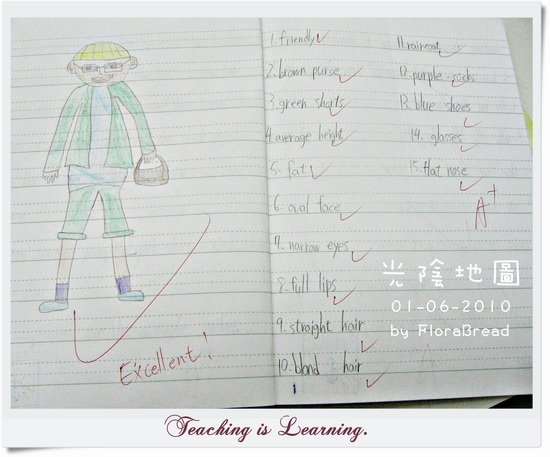 1. friendly
2. brown purse
3. green shorts
4. average height
5. fat
6. oval face
7. narrow eyes
8. full lips
9. straight hair
10. blond hair
11. raincoat
12. purple socks
13. blue shoes
14. glasses
15. flat nose
A+
Excellent!
光陰地圖
01-06-2010
by FloraBread
Teaching is Learning.